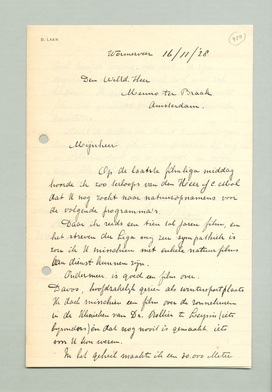 D. LAAN
Wormerveer 16/11/'28
Den WelEd. Heer
Menno ter Braak
Amsterdam.
Mijnheer
Op de laatste filmliga middag
hoorde ik zoo terloops van den Heer
dat U nog zocht naar natuuropnamens voor
de volgende programma's.
Daar ik reeds een tien tal jaren film, en
het streven der Liga mij zeer sympathiek is
zou ik U misschien met enkele natuurfilms
van dienst kunnen zijn.
Ondermeer is goed een film over
Davos, hoofdzakelijk gezien als wintersportplaats
Ik dach misschien een film over de
in de Klinieken van Dr. Rollier te Leysin (iets
bijzonders) en dat nog nooit is gemaakt iets
voor U kon wezen.
In het geheel maakte ik een 30.000 Meter